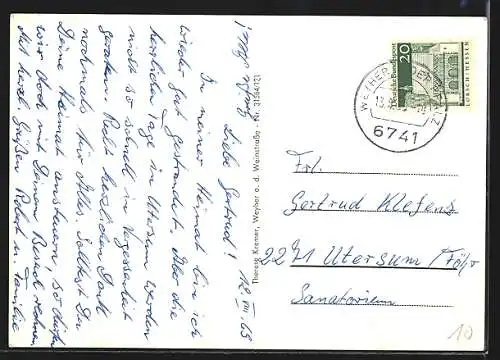 12. VII. 69
Liebe Gertrud!
In meiner Heimat bin ich
wieder gut gestrandet. Aber die
herrlichen Tage in Utersum werden
nicht so schnell in Vergessenheit
geraten. Recht herzlichen Dank
nochmals für Alles. Solltest Du
Deine Heimat ansteuern, so dürfen
wir doch mit Deinem Besuch rechnen.
Mit herzl. Grüßen Robert u. Familie
Theresia Kremer, Weyher a. d. Weinstraße - Nr. 31594/121
Deutsche Bundespost
20
LORSCH/HESSEN
WEYHER
6741
Frl.
Gertrud Klefens
2271 Utersum/Föhr
Sanatorium
10